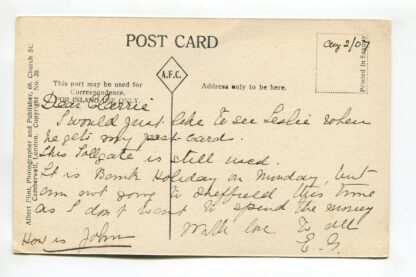 POST CARD
Aug 2/07
A.F.C.
This part may be used for
Correspondence.
FOR INLAND USE ONLY.
Address only to be here.
Printed in Saxony
Albert Flint, Photographer and Publisher, 68, Church St.
Camberwell, London. Copyright No. 20.
Dear Carrie
I would just like to see Leslie when
he gets my post card.
This Tollgate is still used.
It is Bank Holiday on Monday, but
am not going to Sheffield this time
as I don't want to spend the money
With love to all
E. G.
How is John